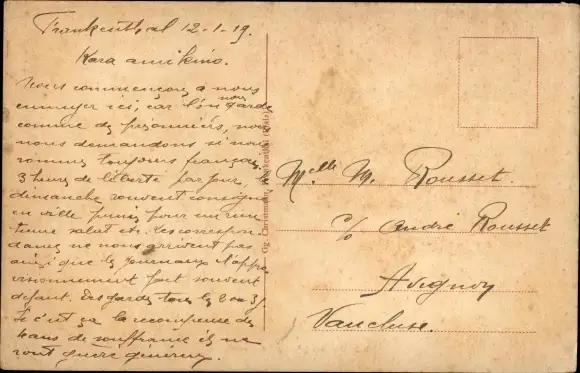 Frankenthal 12-1-19.
Kara amikino.
Nous commençons a nous
ennuyer ici, car l'on nous garde
comme des prisonniers, nous
nous demandons si nous
sommes toujours français,
3 heures de liberté par jour, le
dimanche souvent consigné
en ville punis pour un rien
tenue salut etc. Les correspon
dances ne nous arrivent pas
ainsi que les journaux l'appro
visionnement fait souvent
défaut. Des gardes tous les 2 ou 3 j.
Si c'est ça la recompense des
4 ans de souffrance ils ne
sont guère généreux.
Melle M. Rousset.
c/o André Rousset
Avignon
Vaucluse.
Frankenthal (Pfalz)